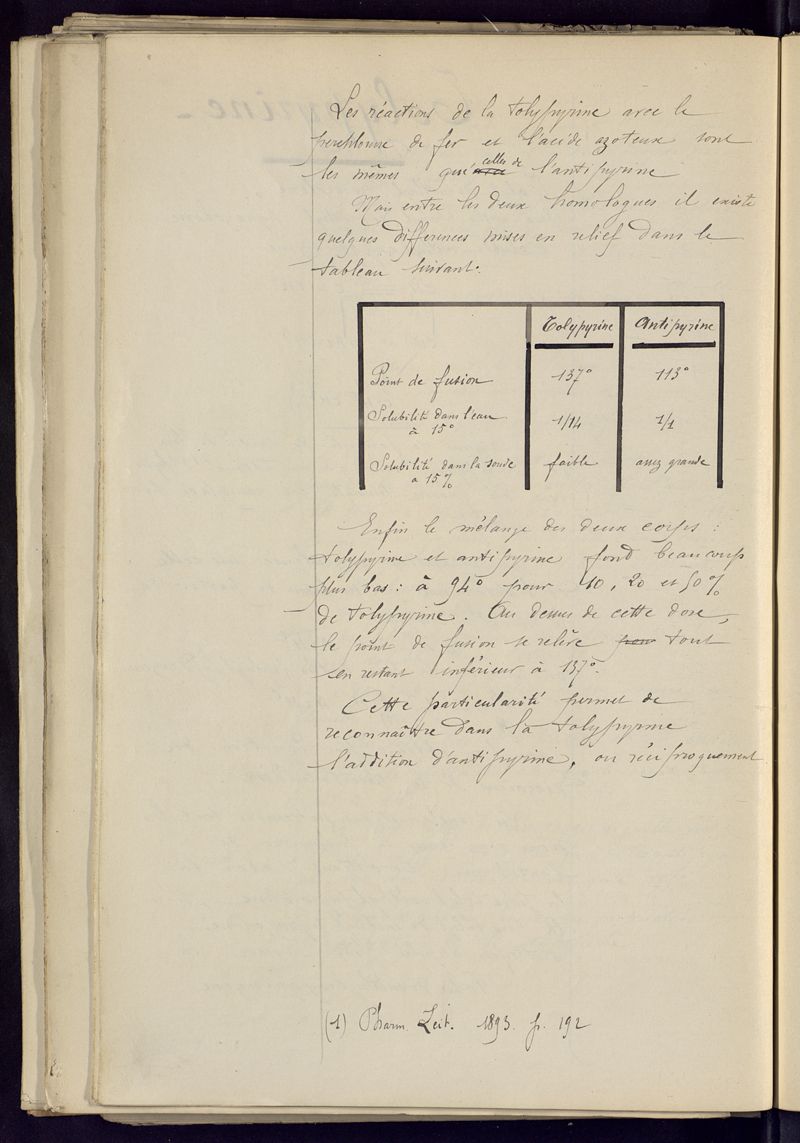 Les réactions de la tolypyrine avec le
perchlorure de fer et l'acide azoteux sont
les mêmes que celles de l'antipyrine
Mais entre les deux homologues il existe
quelques différences mises en relief dans le
tableau suivant.
Tolypyrine Antipyrine
Point de fusion 137° 113°
Solubilité dans l'eau 1/14 1/1
à 15°
Solubilité dans la soude faible assez grande
a 15%
Enfin le mélange des deux corps :
tolypyrine et antipyrine fond beaucoup
plus bas : à 94° pour 10, 20 et 50%
de tolypyrine. Au dessus de cette dose,
le point de fusion se relève tout
en restant inférieur à 137°.
Cette particularité permet de
reconnaître dans la tolypyrine
l'addition d'antipyrine, ou réciproquement
(1) Pharm. Zeit. 1893. p. 192